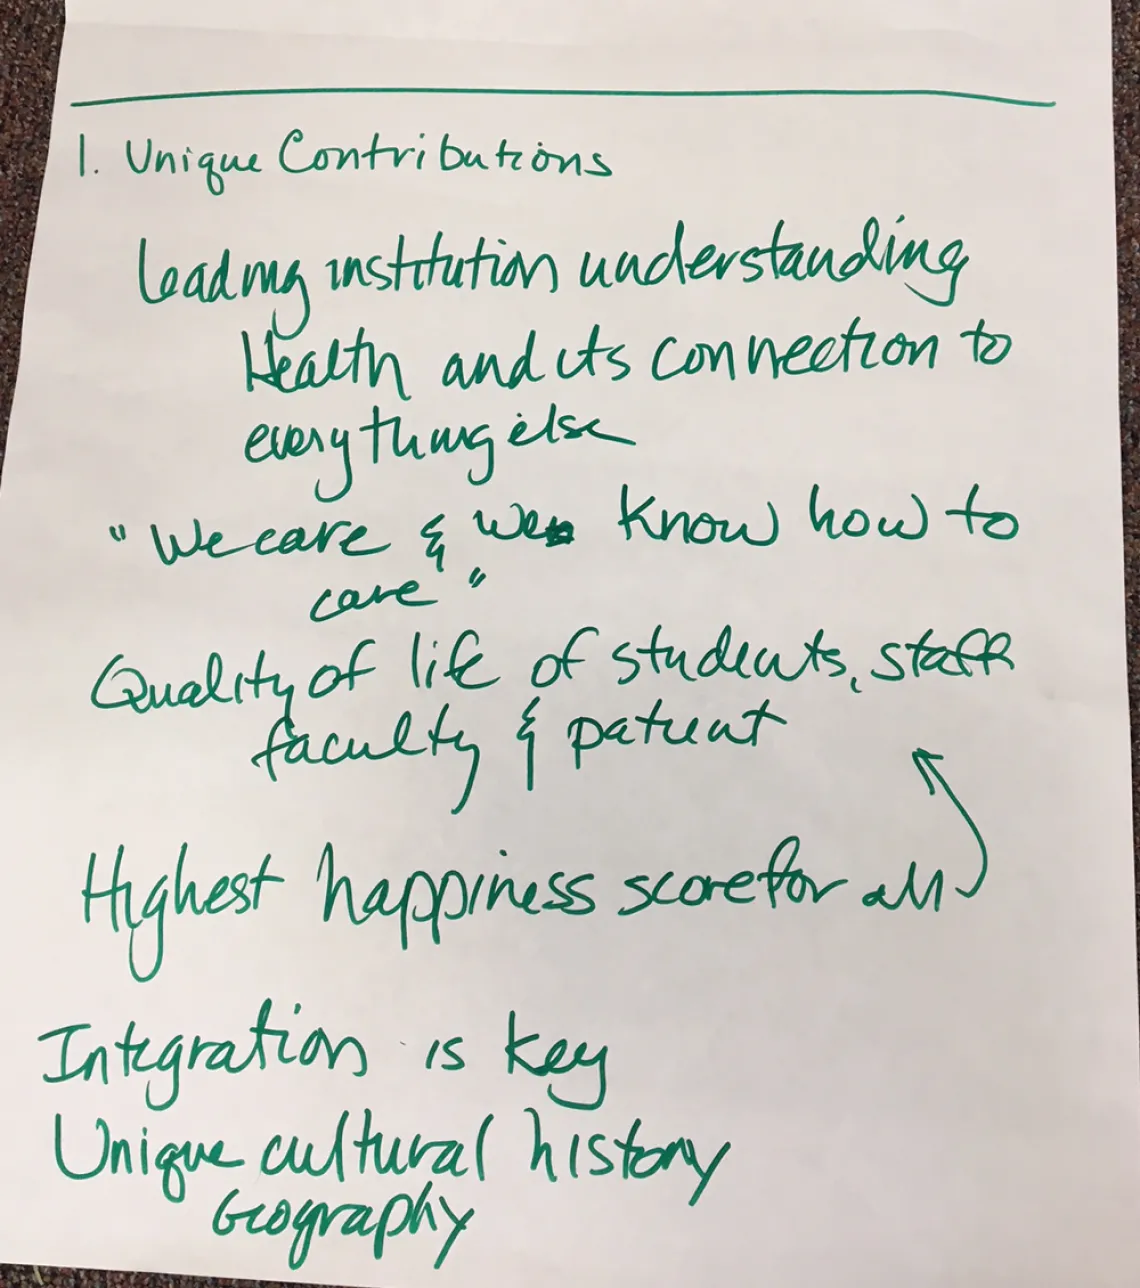 1. Unique Contributions
Leading institution understanding
Health and its connection to
everything else
"We care & we know how to
care"
Quality of life of students, staff
faculty & patient
Highest happiness score for all
Integration is key
Unique cultural history
Geography